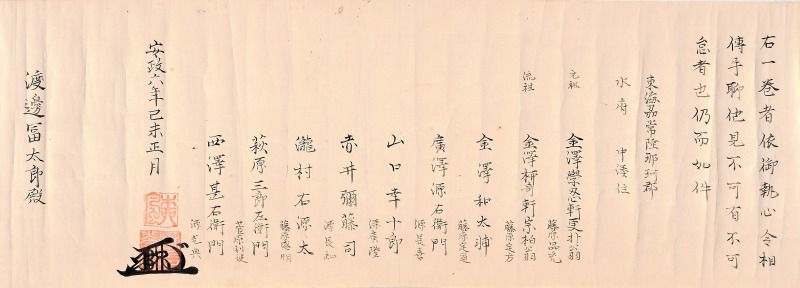 右一巻者依御執心令相
傳手聊他見不可有不可
怠者也仍而如件
東海
常陸那珂郡
水府 中湊住
元祖 金澤學忍軒更朴翁
藤原品充
流祖 金澤
軒宗柏翁
藤原定方
金澤和太浦
藤原定
廣澤源右衛門
源長喜
山口幸十郎
源廣
赤井彌藤司
源長知
瀧村右源太
藤原
萩原三郎左衛門
菅原
西澤甚右衛門
源光典
安政六年己未正月
渡邊冨太郎殿